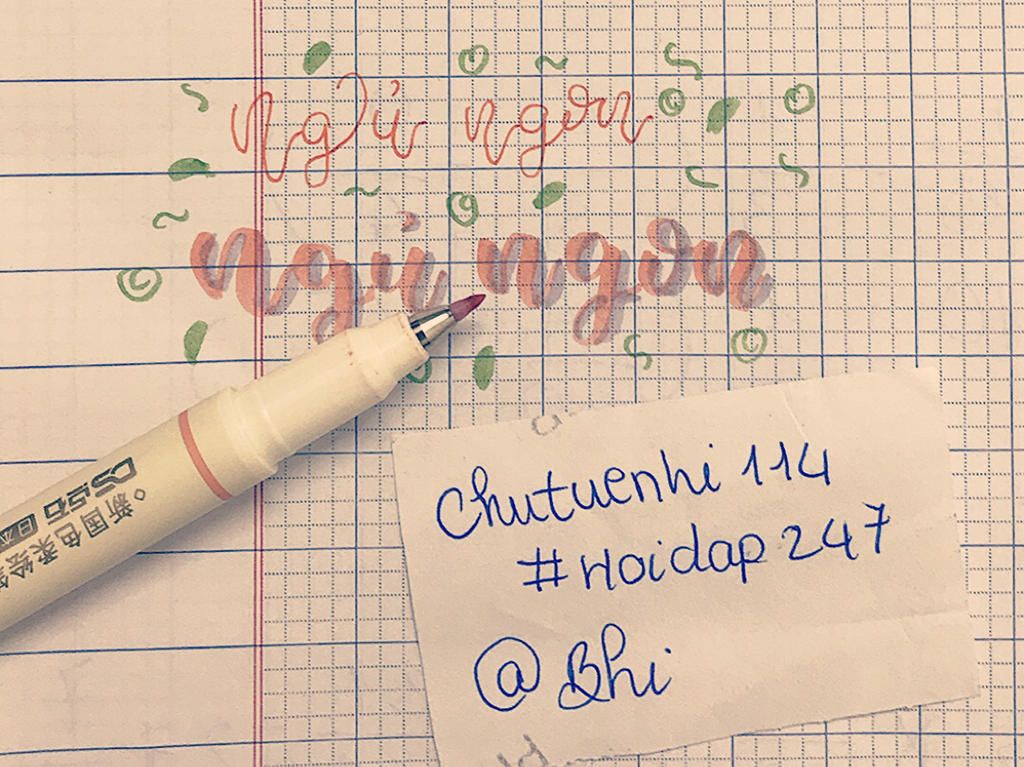 ngủ ngon
ngủ ngon
新国色柔绘
chutuenhi 114
#Hoidap 247
@Bhi